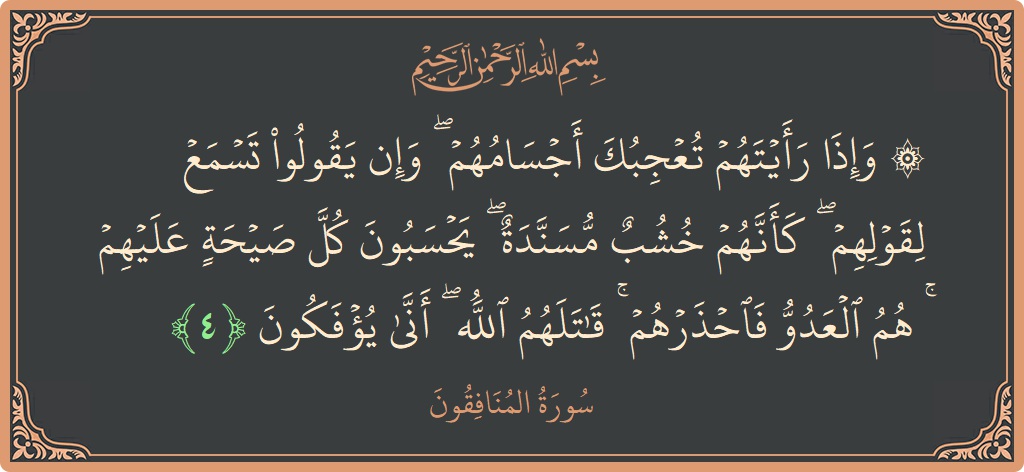 بِسْمِ اللَّهِ الرَّحْمَٰنِ الرَّحِيمِ
۞ وَإِذَا رَأَيْتَهُمْ تُعْجِبُكَ أَجْسَامُهُمْ ۖ وَإِن يَقُولُوا۟ تَسْمَعْ
لِقَوْلِهِمْ ۖ كَأَنَّهُمْ خُشُبٌ مُّسَنَّدَةٌ ۖ يَحْسَبُونَ كُلَّ صَيْحَةٍ عَلَيْهِمْ
ۚ هُمُ ٱلْعَدُوُّ فَٱحْذَرْهُمْ ۚ قَـٰتَلَهُمُ ٱللَّهُ ۖ أَنَّىٰ يُؤْفَكُونَ ﴿٤﴾
سُورَةُ المُنَافِقُونَ